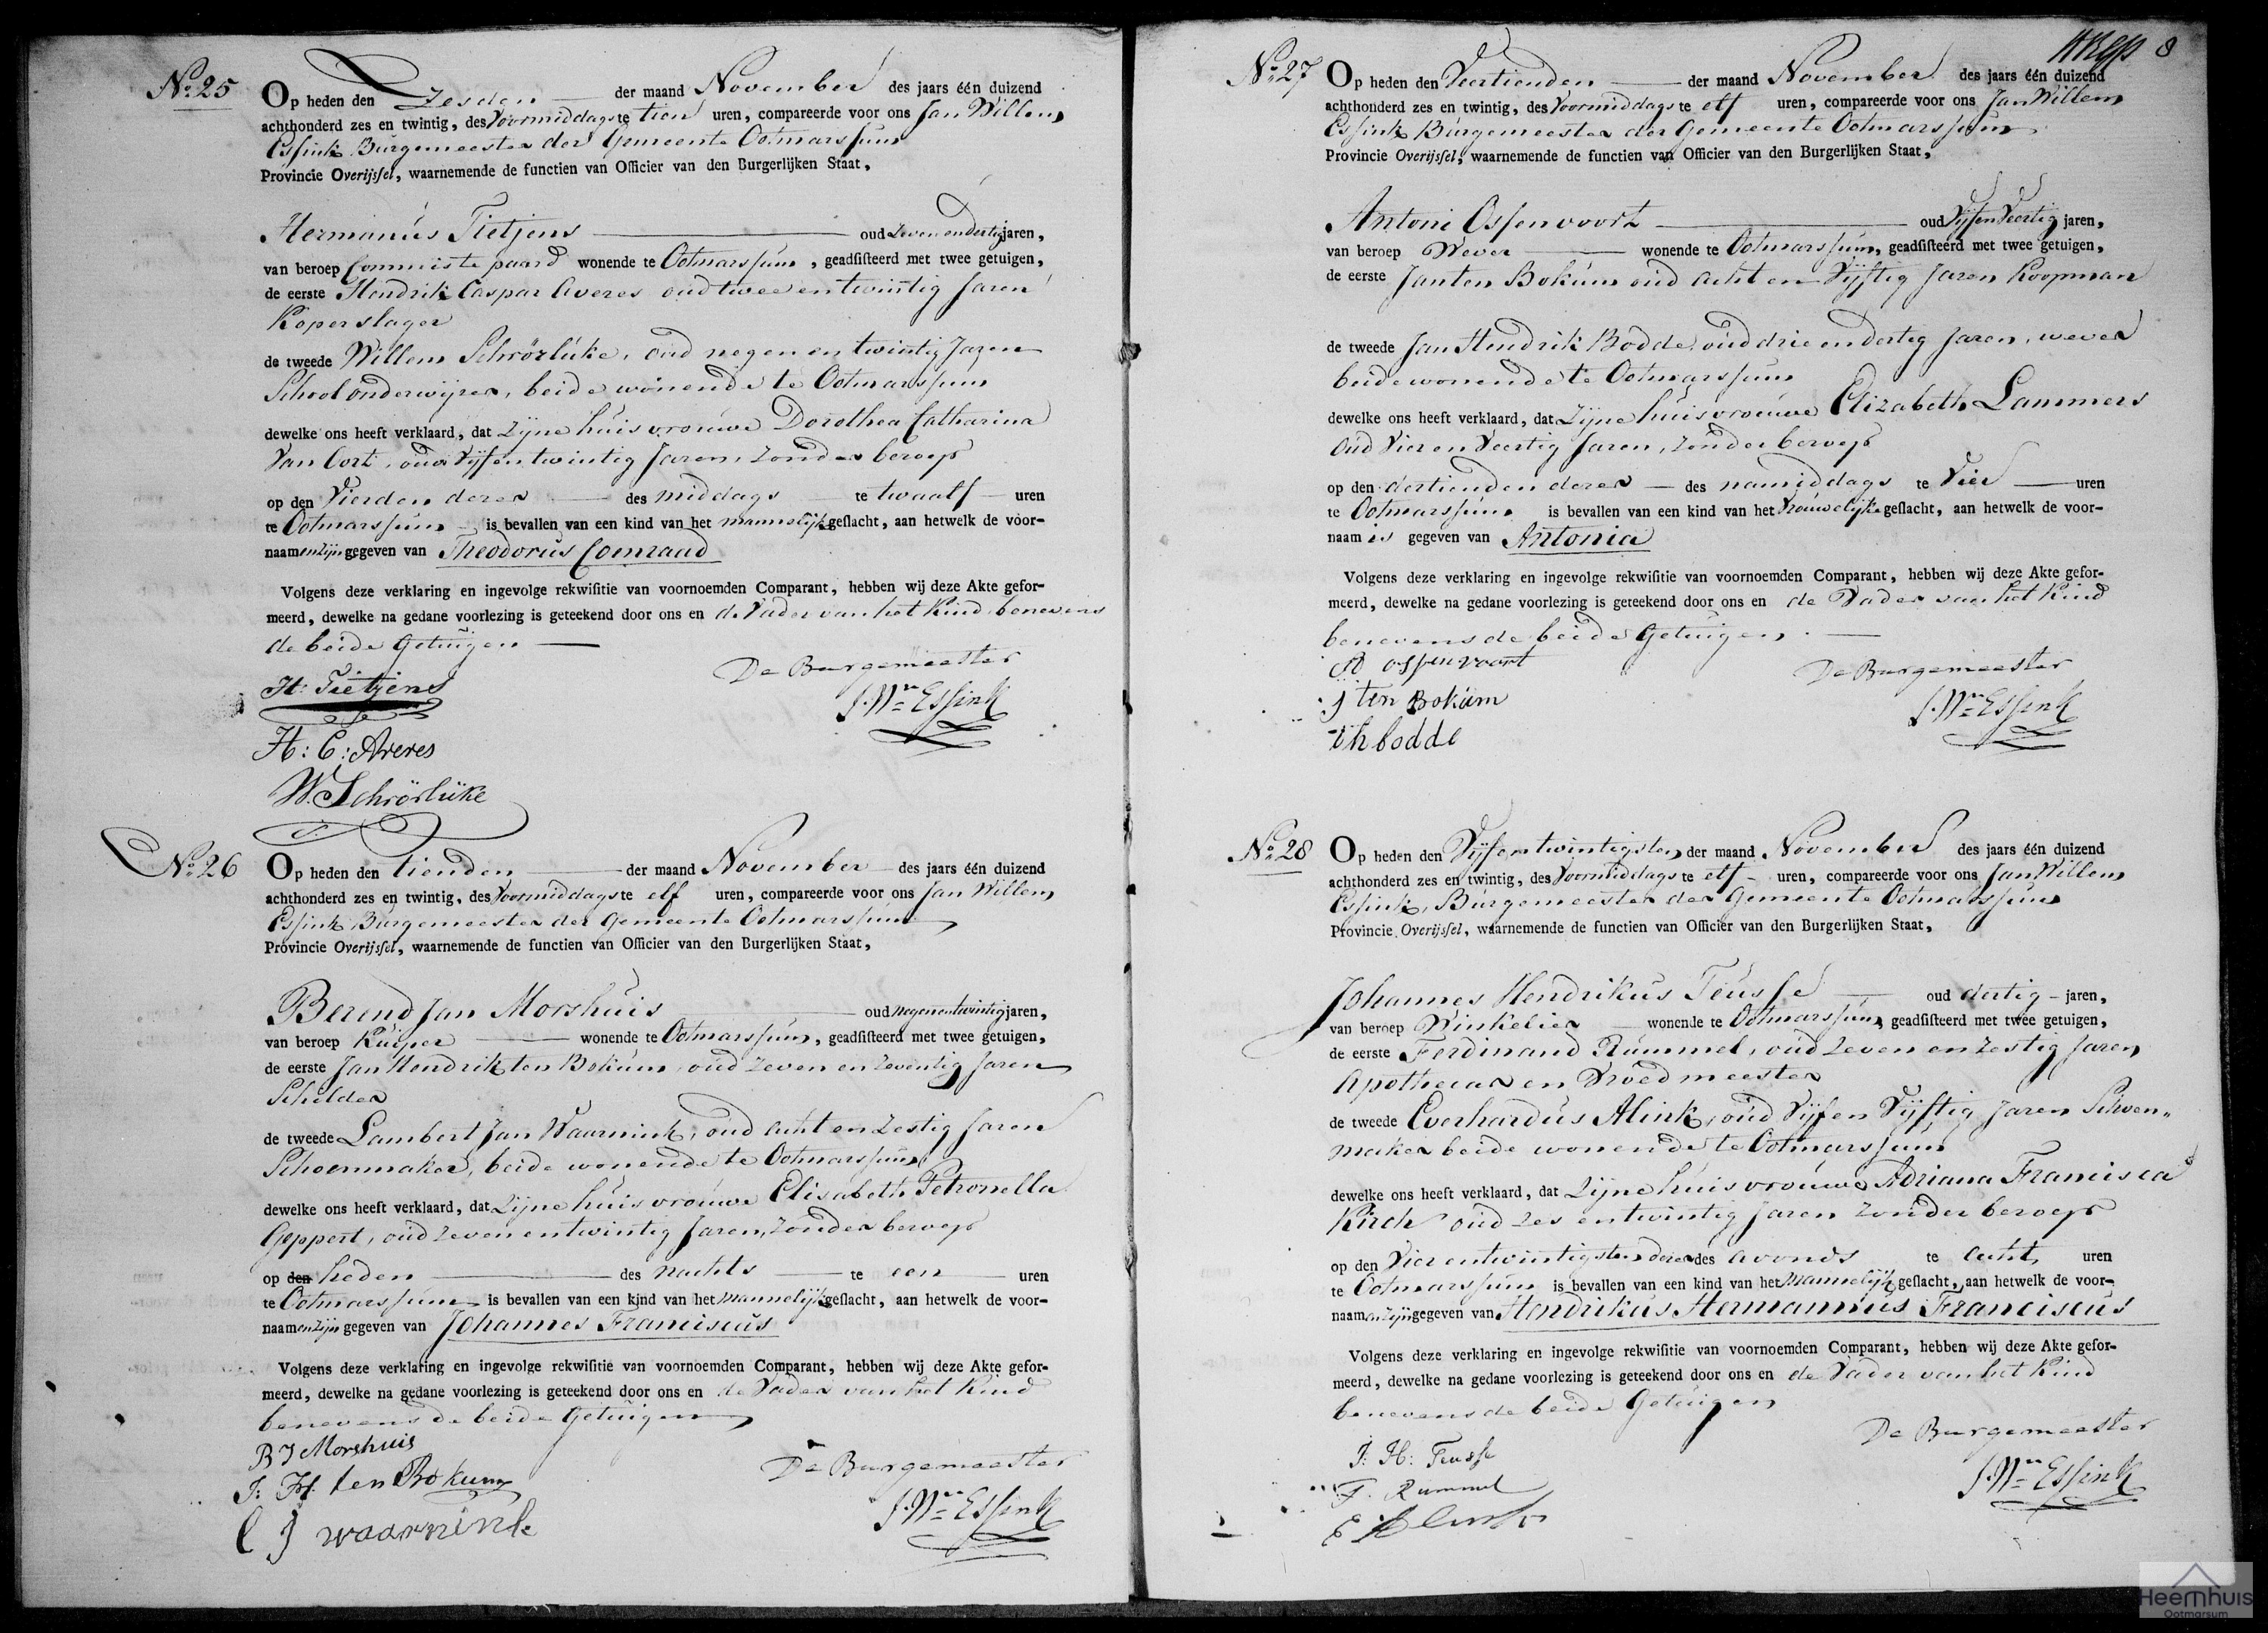 No. 25
Op heden den Zesden der maand November des jaars één duizend
achthonderd zes en twintig, des Voormiddags te tien uren, compareerde voor ons Jan Willem
Essink Burgemeester der Gemeente Ootmarssum
Provincie Overijssel, waarnemende de functien van Officier van den Burgerlijken Staat,
Hermanus Tietjens oud Zeven en dertig jaren,
van beroep Commis te paard wonende te Ootmarssum, geadsisteerd met twee getuigen,
de eerste Hendrik Caspar Averes oud twee en twintig Jaren
Koperslager
de tweede Willem Schrörlüke, oud negen en twintig Jaren
Schoolonderwijzer, beide wonende te Ootmarssum
dewelke ons heeft verklaard, dat Zijne huisvrouwe Dorothea Catharina
Van Oort, oud Vijf en twintig Jaren, Zonder beroep
op den Vierden dezer des middags te twaalf uren
te Ootmarssum is bevallen van een kind van het mannelijk geslacht, aan hetwelk de voor-
naamen Zijn gegeven van Theodorus Coenraad
Volgens deze verklaring en ingevolge rekwisitie van voornoemden Comparant, hebben wij deze Akte gefor-
meerd, dewelke na gedane voorlezing is geteekend door ons en de Vader van het Kind benevens
de beide Getuigen
De Burgemeester
H: Tietjens
J. Wm Essink
H: C: Averes
W. Schrörlüke
No. 26
Op heden den tienden der maand November des jaars één duizend
achthonderd zes en twintig, des Voormiddags te elf uren, compareerde voor ons Jan Willem
Essink Burgemeester der Gemeente Ootmarssum
Provincie Overijssel, waarnemende de functien van Officier van den Burgerlijken Staat,
Berend Jan Morshuis oud negen en twintig jaren,
van beroep Kuiper wonende te Ootmarssum, geadsisteerd met twee getuigen,
de eerste Jan Hendrik ten Bokum, oud Zeven en Zeventig Jaren
Schilder
de tweede Lambert Jan Waarnink, oud acht en Zestig Jaren
Schoenmaker, beide wonende te Ootmarssum
dewelke ons heeft verklaard, dat Zijne huisvrouwe Elisabeth Petronella
Geppert, oud Zeven en twintig Jaren, Zonder beroep
op den heden des nachts te een uren
te Ootmarssum is bevallen van een kind van het mannelijk geslacht, aan hetwelk de voor-
naamen Zijn gegeven van Johannes Franciscus
Volgens deze verklaring en ingevolge rekwisitie van voornoemden Comparant, hebben wij deze Akte gefor-
meerd, dewelke na gedane voorlezing is geteekend door ons en de Vader van het Kind
benevens de beide Getuigen
B J Morshuis
De Burgemeester
J: H. ten Bokum
J. Wm Essink
L J waarnink
8
No. 27
Op heden den Veertienden der maand November des jaars één duizend
achthonderd zes en twintig, des Voormiddags te elf uren, compareerde voor ons Jan Willem
Essink Burgemeester der Gemeente Ootmarssum
Provincie Overijssel, waarnemende de functien van Officier van den Burgerlijken Staat,
Antoni Ossenvoort oud Vijf en Veertig jaren,
van beroep Wever wonende te Ootmarssum, geadsisteerd met twee getuigen,
de eerste Jan ten Bokum oud acht en Vijftig Jaren Koopman
de tweede Jan Hendrik Bodde, oud drie en dertig Jaren, wever
beide wonende te Ootmarssum
dewelke ons heeft verklaard, dat Zijne huisvrouwe Elizabeth Lammers
oud Vier en Veertig Jaren, Zonder beroep
op den dertienden dezer des namiddags te Vier uren
te Ootmarssum is bevallen van een kind van het Vrouwelijk geslacht, aan hetwelk de voor-
naam is gegeven van Antonia
Volgens deze verklaring en ingevolge rekwisitie van voornoemden Comparant, hebben wij deze Akte gefor-
meerd, dewelke na gedane voorlezing is gereekend door ons en de Vader van het Kind
benevens de beide Getuigen
A ossenvoort
De Burgemeester
J ten Bokum
J. Wm Essink
J h bodde
No. 28
Op heden den Vijf en twintigsten der maand November des jaars één duizend
achthonderd zes en twintig, des Voormiddags te elf uren, compareerde voor ons Jan Willem
Essink, Burgemeester der Gemeente Ootmarssum
Provincie Overijssel, waarnemende de functien van Officier van den Burgerlijken Staat,
Johannes Hendrikus Teusse oud dertig jaren,
van beroep Winkelier wonende te Ootmarssum, geadsisteerd met twee getuigen,
de eerste Ferdinand Rummel, oud Zeven en Zestig Jaren
Apothecar en Vroedmeester
de tweede Everhardus Alink, oud Vijf en Vijftig Jaren Schoen-
maker beide wonende te Ootmarssum
dewelke ons heeft verklaard, dat Zijne huisvrouwe Adriana Francisca
Kirch oud Zes en twintig Jaren Zonder beroep
op den Vier en twintigsten dezer des avonds te acht uren
te Ootmarssum is bevallen van een kind van het Mannelijk geslacht, aan hetwelk de voor-
naamen Zijn gegeven van Hendrikus Hermannus Franciscus
Volgens deze verklaring en ingevolge rekwisitie van voornoemden Comparant, hebben wij deze Akte gefor-
meerd, dewelke na gedane voorlezing is geteekend door ons en de Vader van het Kind
benevens de beide Getuigen
De Burgemeester
J: H: Teusse
J. Wm Essink
F. Rummel
Heemhuis
Ootmarsum